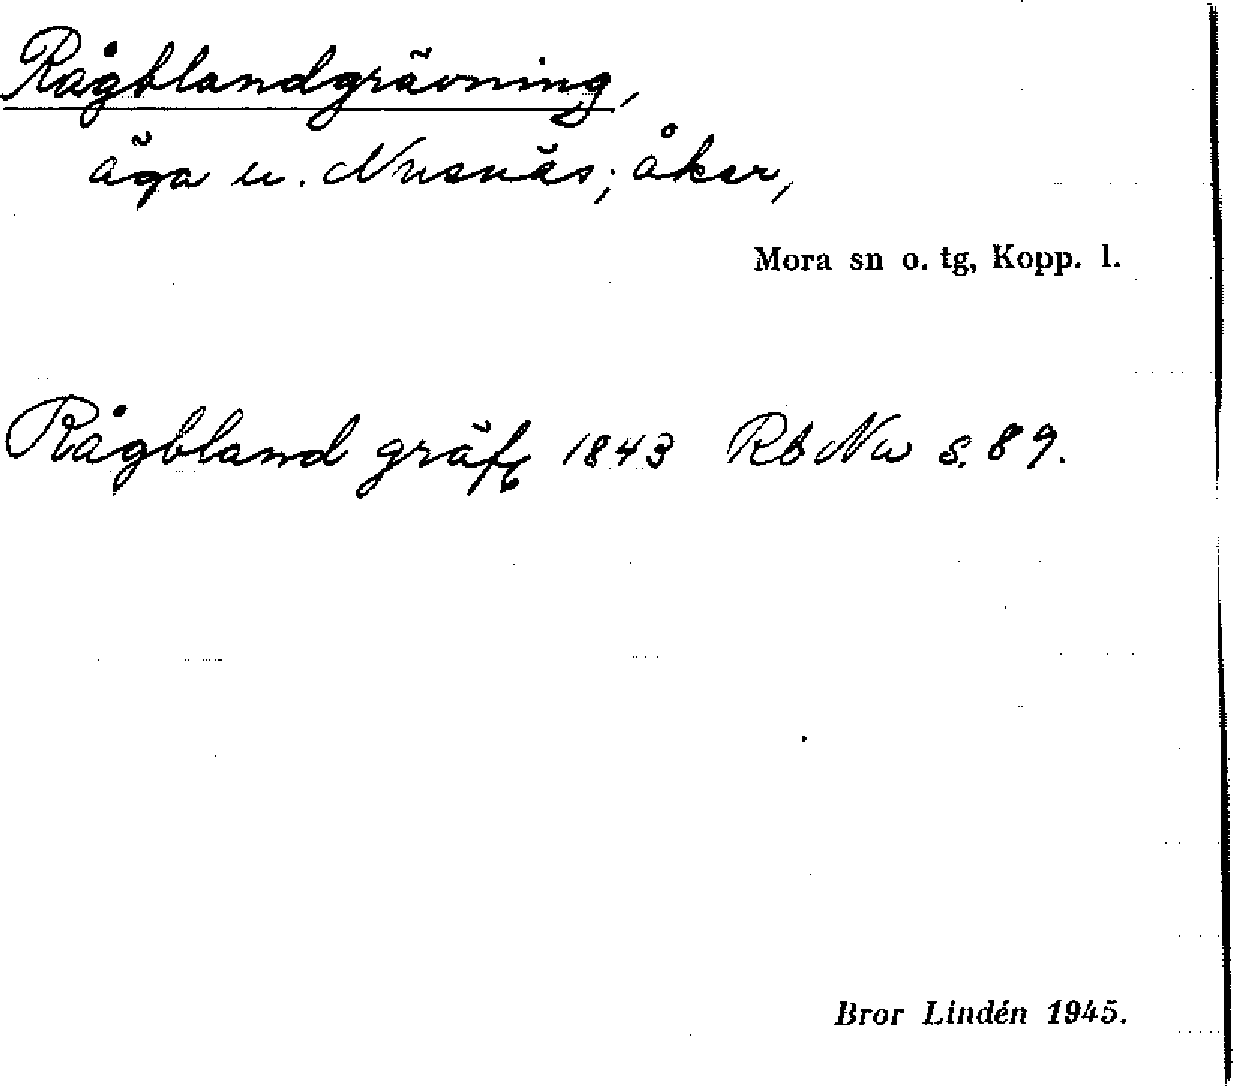 Rågblandgrävning,
äga u. Nusnäs; åker,
Mora sn o. tg, Kopp. l.
Rågbland gräfg 1843 RbNu s. 89.
Bror Lindén 1945.